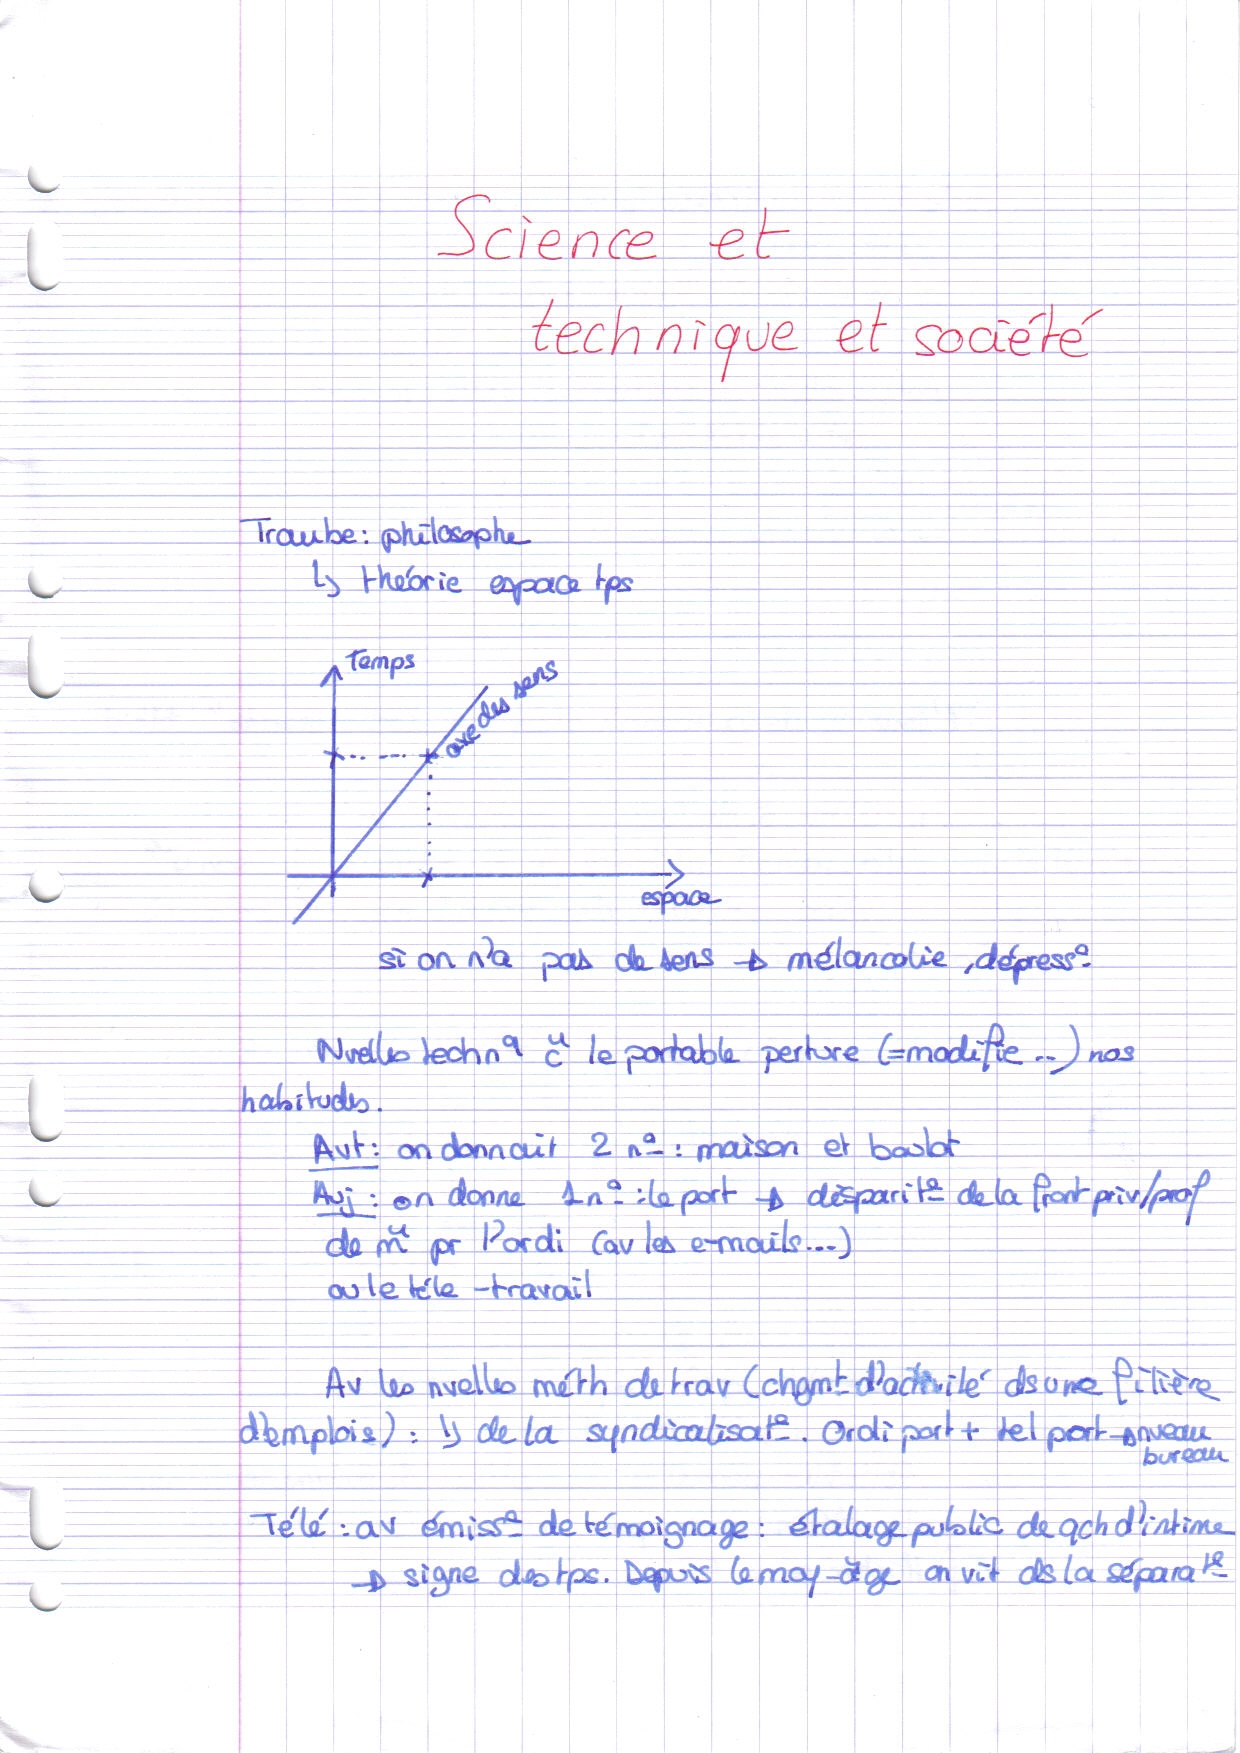 Science et
technique et société
Traube : philosophe
↳ théorie espace tps
Temps
axe des sens
espace
si on n'a pas de sens → mélancolie, dépress°
Nvelles techn q c̈ le portable perture (=modifie...) nos
habitudes.
Avt : on donnait 2 n° : maison et boulot
Auj : on donne 1 n° : le port → disparit° de la front priv/prof
de m̂ pr l'ordi (av les e-mails...)
ou le télé-travail
Av les nvelles méth de trav (chgmt d'activité ds une filière
d'emplois) : ↳ de la syndicalisat°. Ordi port + tel port → nveau
bureau
Télé : av émiss° de témoignage : étalage public de qch d'intime
→ signe des tps. Depuis le moy-âge on vit ds la séparat°